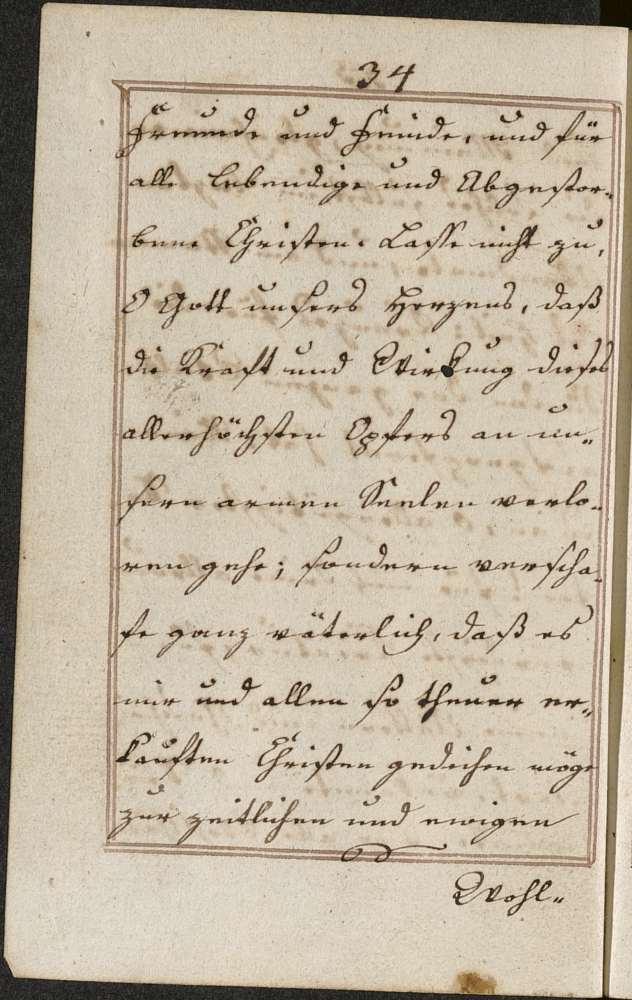 34
Freunde und Feinde, und für
alle lebendige und Abgestor-
bene Christen. Lasse nicht zu,
O Gott unsers Herzens, daß
die Kraft und Wirkung dieses
allerhöchsten Opfers an un-
sern armen Seelen verlo-
ren gehe; sondern verscha-
fe ganz väterlich, daß es
mir und allen so theuer er-
kauften Christen gedeihen möge
zur zeitlichen und ewigen
Wohl-